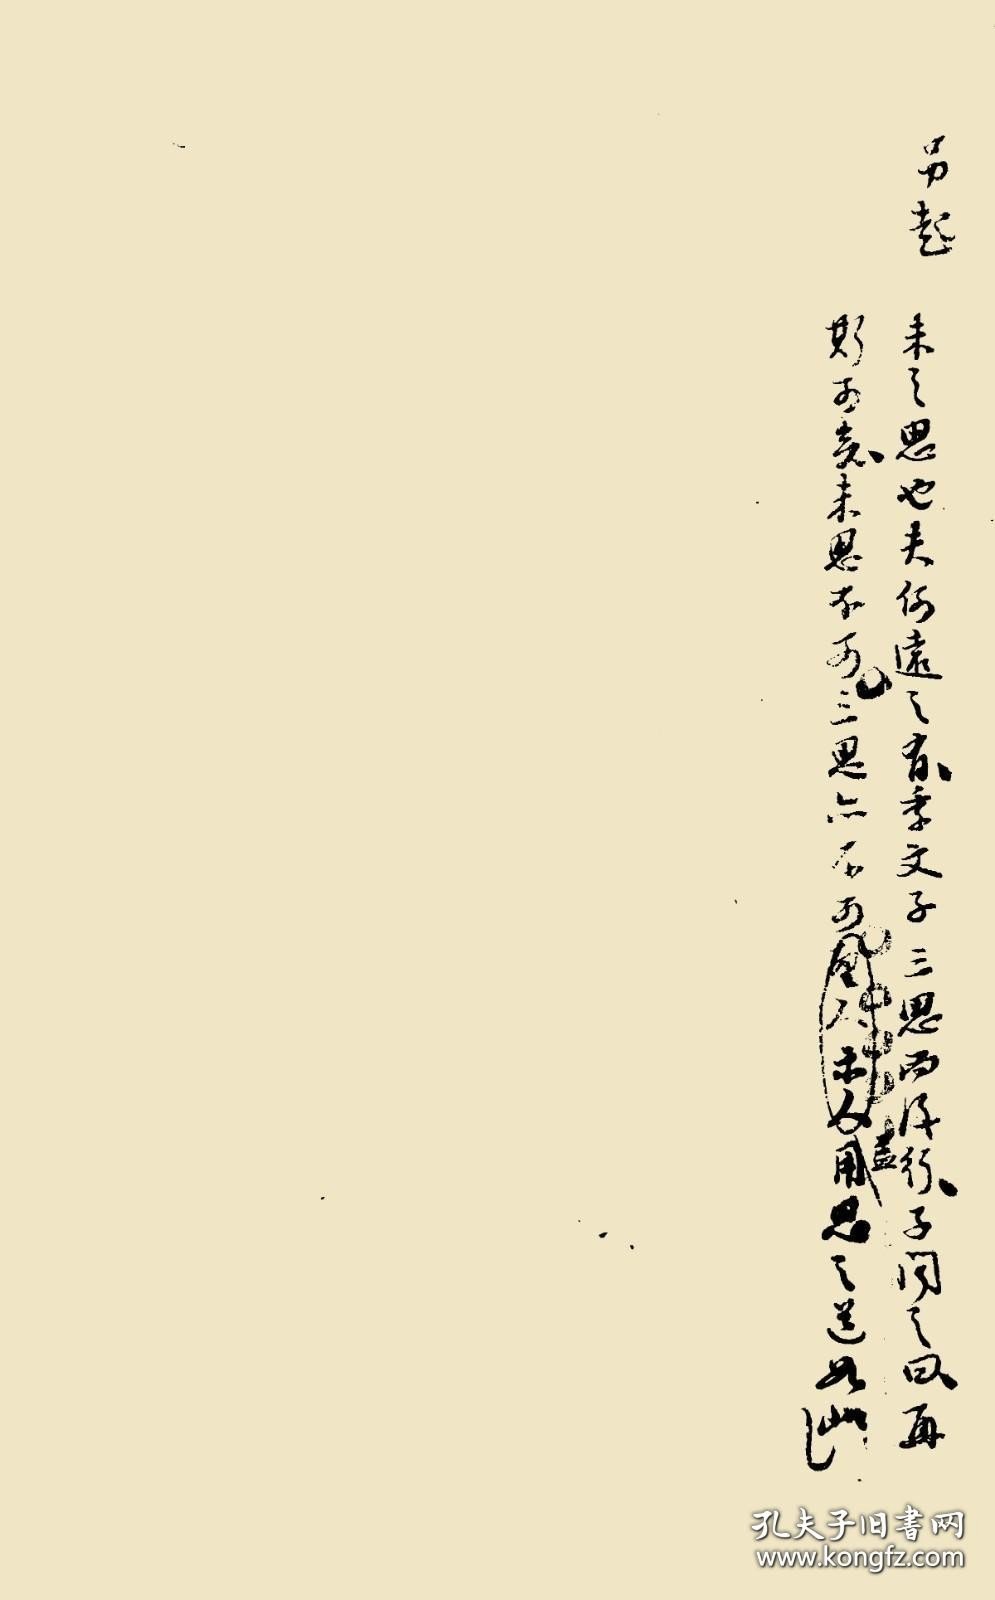 另起
未之思也夫何遠之有季文子三思而後行子聞之曰再
斯可矣未思不可三思亦不可聖人示人用思之道如此
蓋
孔夫子旧書网
www.kongfz.com